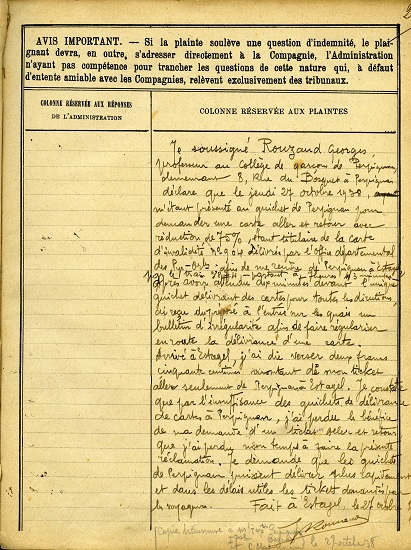 AVIS IMPORTANT. — Si la plainte soulève une question d'indemnité, le plai-
gnant devra, en outre, s'adresser directement à la Compagnie, l'Administration
n'ayant pas compétence pour trancher les questions de cette nature qui, à défaut
d'entente amiable avec les Compagnies, relèvent exclusivement des tribunaux.
COLONNE RÉSERVÉE AUX RÉPONSES
DE L'ADMINISTRATION
COLONNE RÉSERVÉE AUX PLAINTES
Je soussigné Rouzaud Georges,
professeur au Collège de garçons de Perpignan,
demeurant 8, Rue du Bosquet à Perpignan
déclare que le jeudi 27 octobre 1938, ayant
m'étant présenté au guichet de Perpignan pour
demander une carte aller et retour avec
réduction de 75%, étant titulaire de la Carte
d'invalidité N° 904 délivrée par l'office départemental
des Pyr-Or, afin de me rendre de Perpignan à Estagel
par le train partant à heures 43 minutes
Après avoir attendu dix minutes devant l'unique
guichet délivrant des cartes pour toutes les directions,
j'ai reçu à l'entrée sur les quais un
bulletin d'irrégularité afin de faire régulariser
en route la délivrance d'une carte.
Arrivé à Estagel, j'ai dû verser deux francs
cinquante centimes montant de mon ticket
aller seulement de Perpignan à Estagel. Je constate
que par l'insuffisance des guichets de délivrance
de cartes à Perpignan, j'ai perdu le bénéfice
de ma demande d'un ticket aller et retour
que j'ai perdu mon temps à faire la présente
réclamation. Je demande que les guichets
de Perpignan puissent délivrer plus rapidement
et dans les délais utiles les ticket demandés par
les voyageurs. Fait à Estagel, le 27 octobre
Copie transmise à
le 27 octobre 38